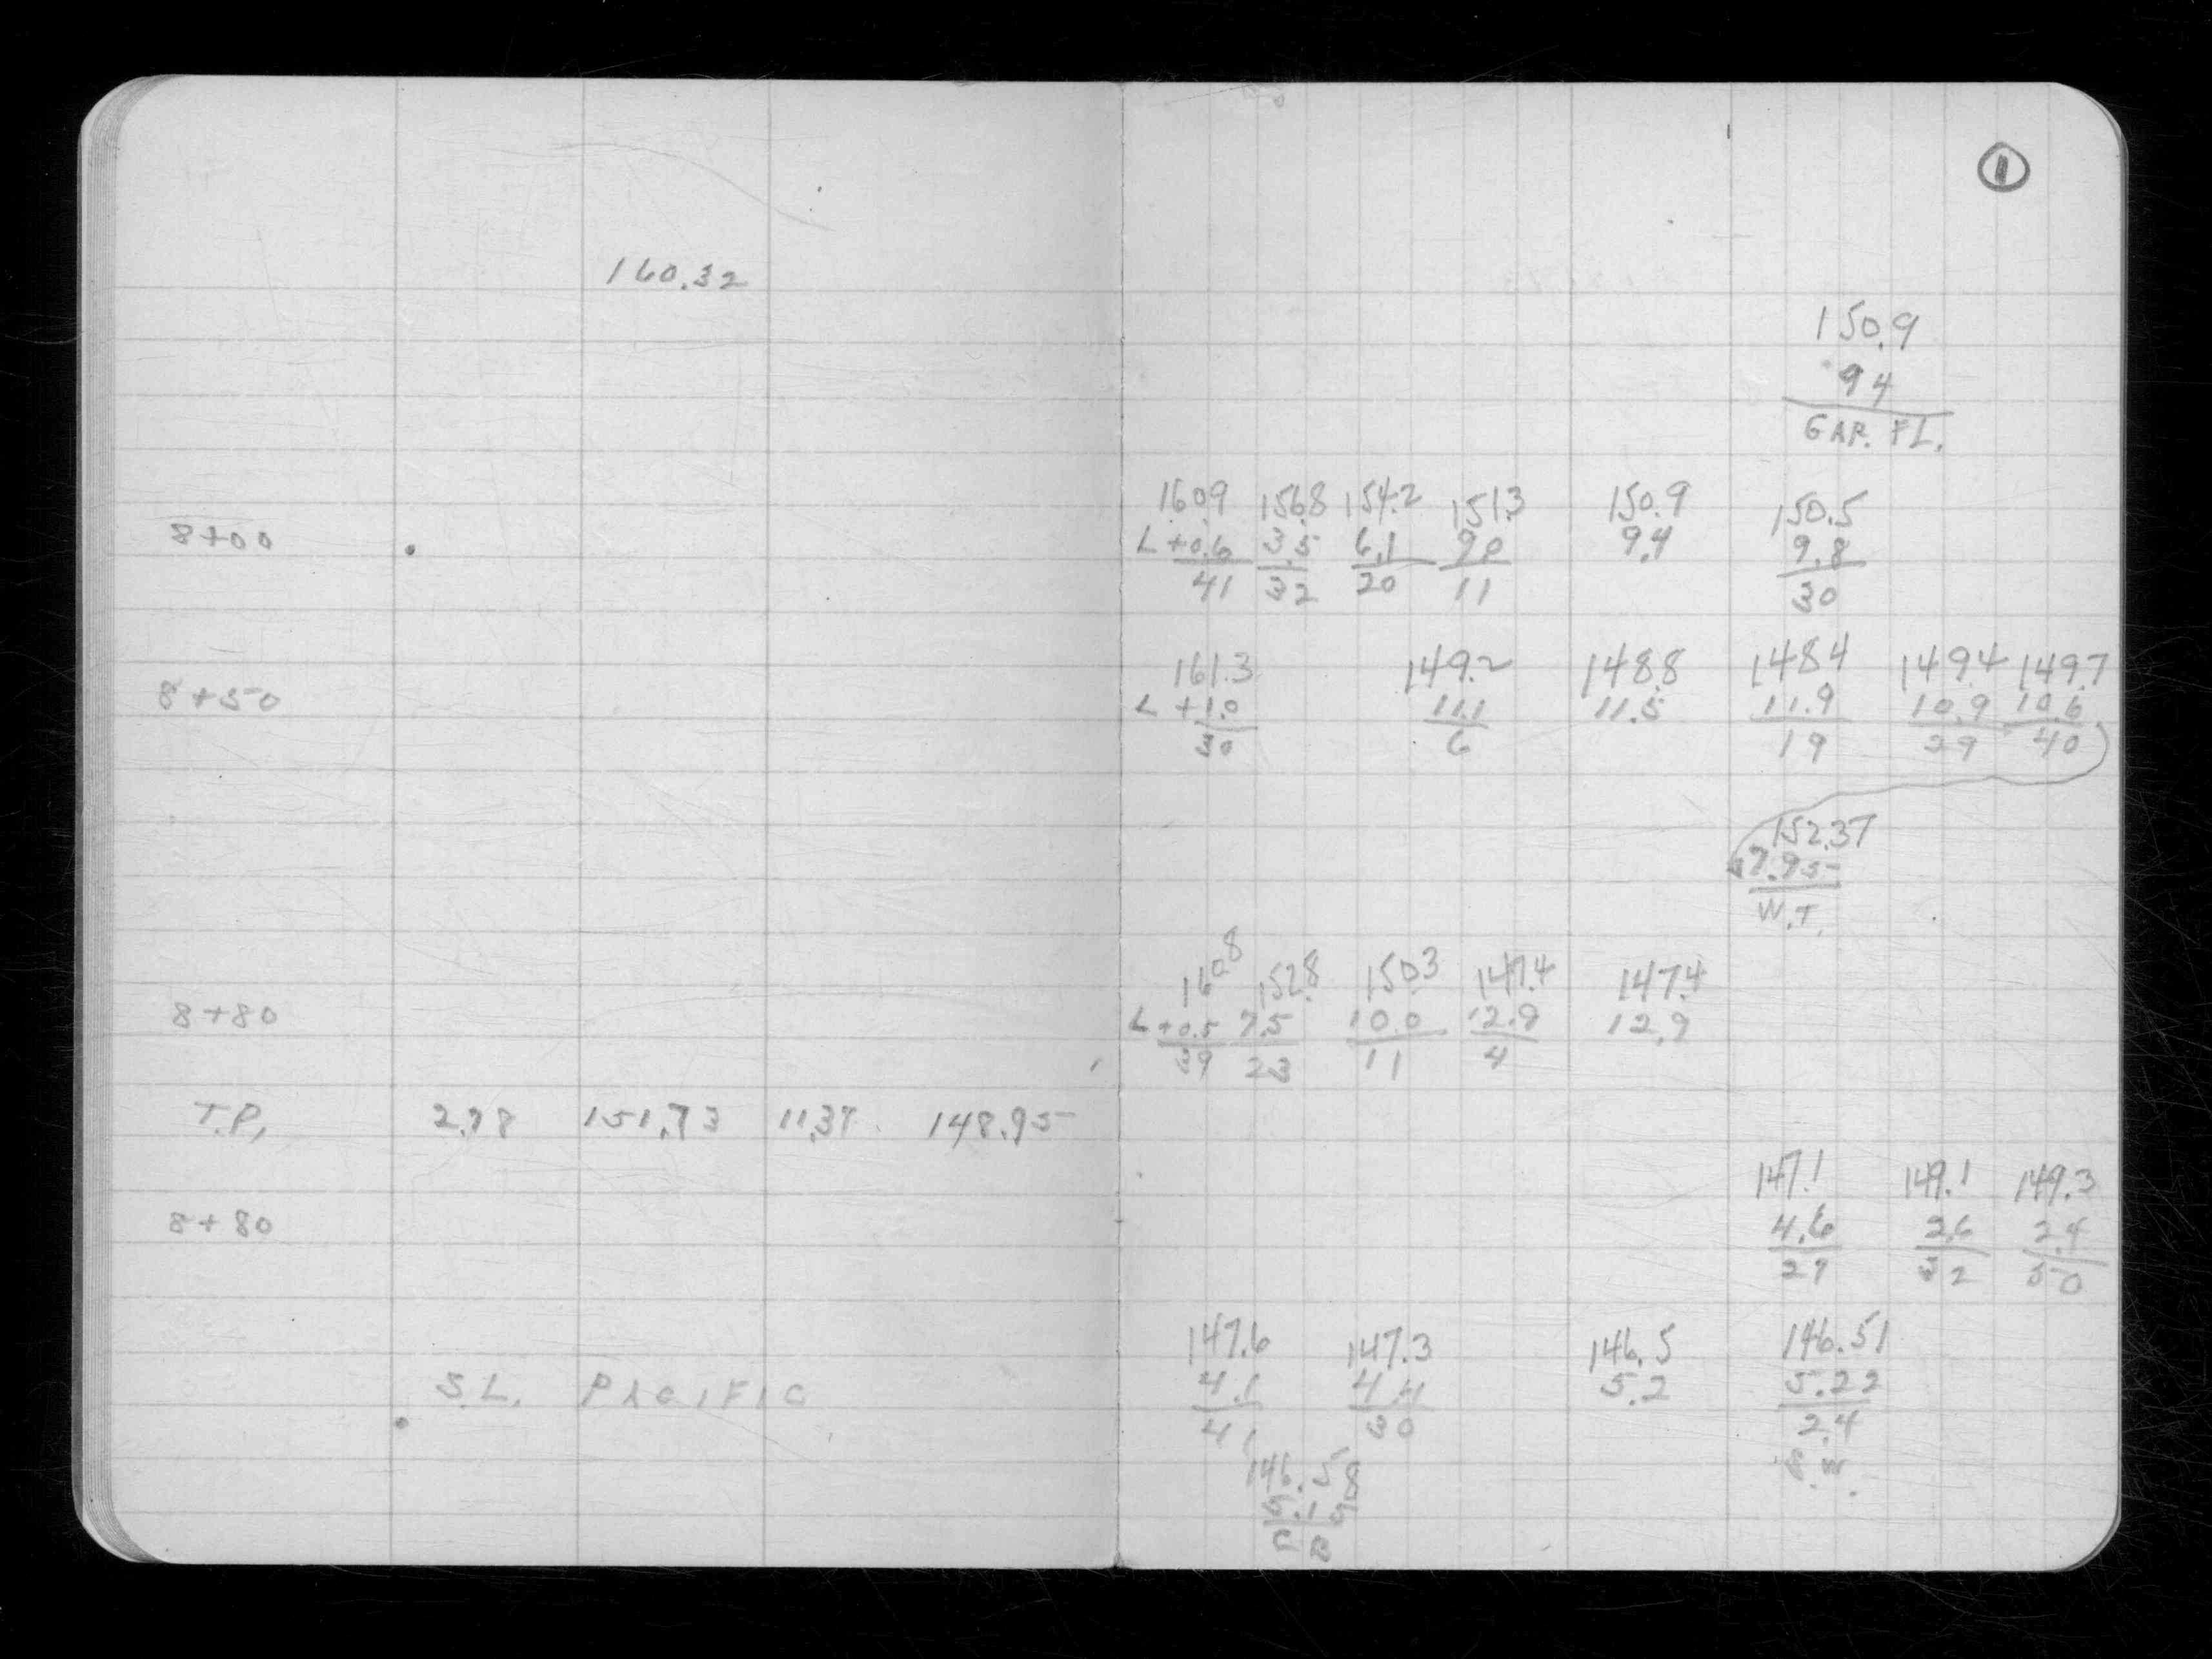 1
160.32
150.9
9.4
GAR. FL.
160.9 156.8 154.2 151.3 150.9 150.5
8+00 L +0.6 3.5 6.1 9.0 9.4 9.8
41 32 20 11 30
161.3 149.2 148.8 148.4 149.4 149.7
8+50 L +1.0 11.1 11.5 11.9 10.9 10.6
30 6 19 29 40
152.37
7.95
W.T.
160.8 152.8 150.3 147.4 147.4
8+80 L +0.5 7.5 10.0 12.9 12.9
39 23 11 4
T.P. 2.78 151.73 11.37 148.95
147.1 149.1 149.3
8+80 4.6 2.6 2.4
27 32 50
147.6 147.3 146.5 146.51
S.L. PACIFIC 4.1 4.4 5.2 5.22
41 30 2.4
146.58